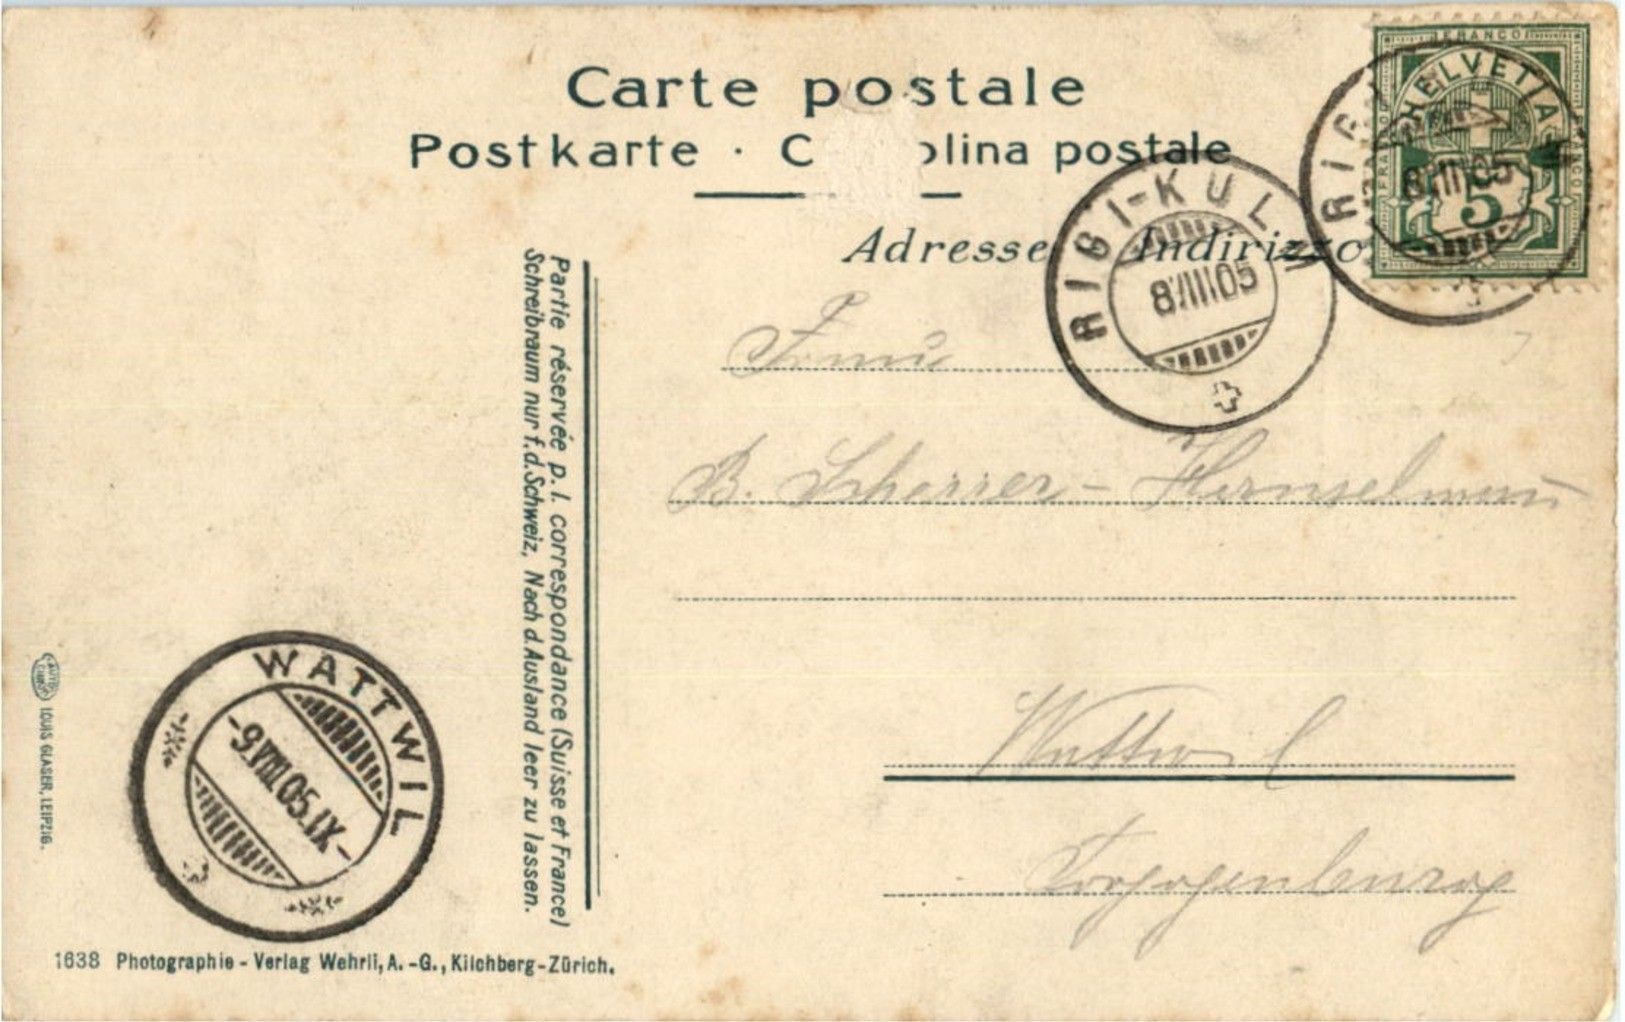 Carte postale
Postkarte · C olina postale
Adresse Indirizzo
FRANCO
HELVETIA
FRANCO
FRANCO
5
RIGI
8.VIII 05
RIGI-KULM
8.VIII 05
Frau
B. Scherrer-
Wattwil
Toggenburg
Partie réservée p. l. correspondance (Suisse et France)
Schreibraum nur f. d. Schweiz, Nach d. Ausland leer zu lassen.
WATTWIL
-9.VIII 05.IX-
LOUIS GLASER, LEIPZIG.
1638 Photographie - Verlag Wehrli, A. -G., Kilchberg-Zürich.